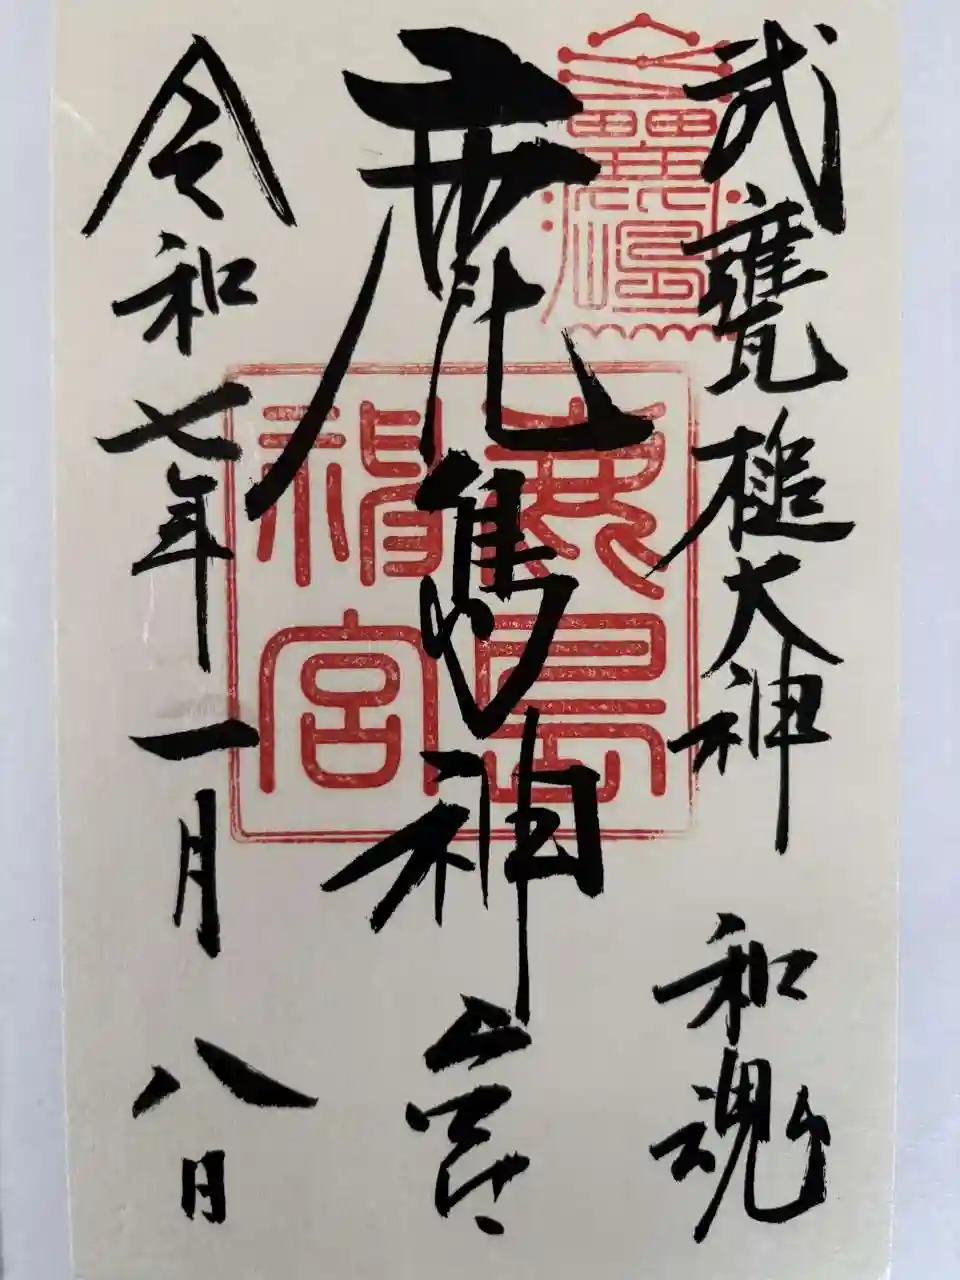 武甕槌大神 和魂
鹿島神宮
令和七年一月八日
鹿島
神宮